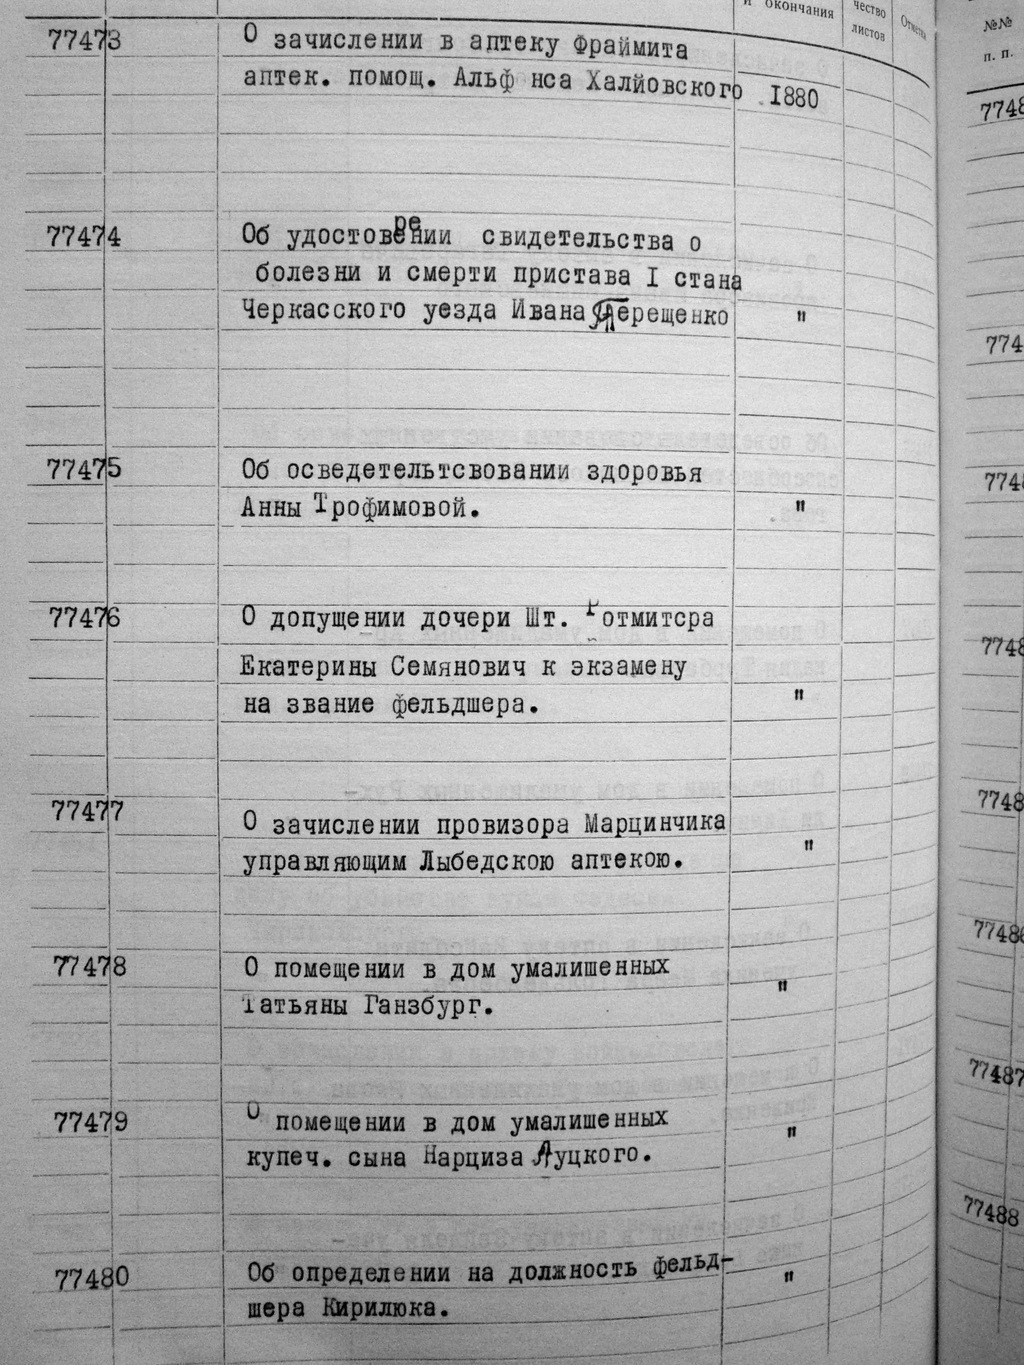 и окончания
чество
листов
Отметка
77473
О зачислении в аптеку Фраймита
аптек. помощ. Альф нса Халйовского 1880
77474
Об удостоверении свидетельства о
болезни и смерти пристава I стана
Черкасского уезда Ивана Терещенко "
77475
Об осведетельтсвовании здоровья
Анны Трофимовой. "
77476
О допущении дочери Шт. Ротмитсра
Екатерины Семянович к экзамену
на звание фельдшера. "
77477
О зачислении провизора Марцинчика
управляющим Лыбедскою аптекою. "
77478
О помещении в дом умалишенных
Татьяны Ганзбург. "
77479
О помещении в дом умалишенных
купеч. сына Нарциза Луцкого. "
77480
Об определении на должность фельд-
шера Кирилюка. "
№№
п. п.
7748
774
7748
7748
7748
77486
77487
77488